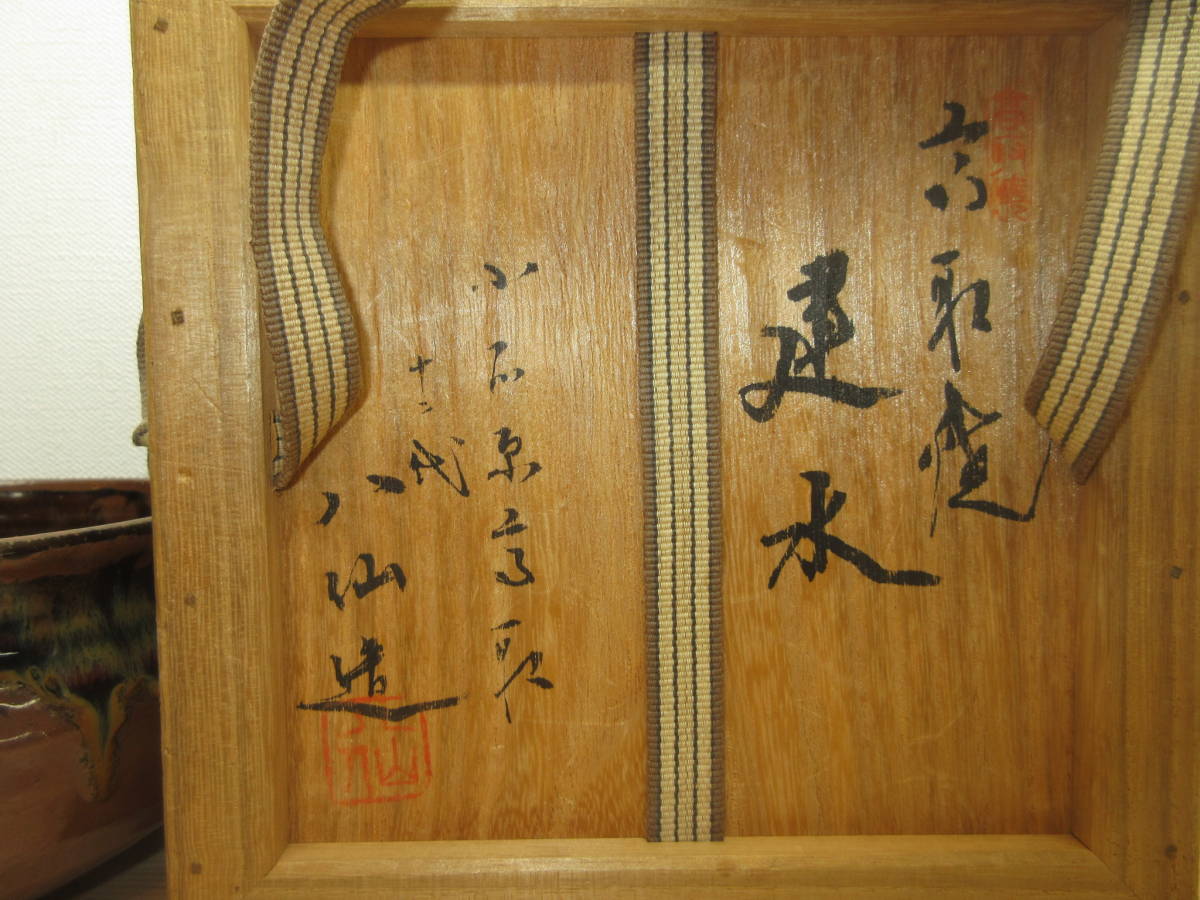 高取焼
建水
小石原高取
十二代
八仙造
八仙